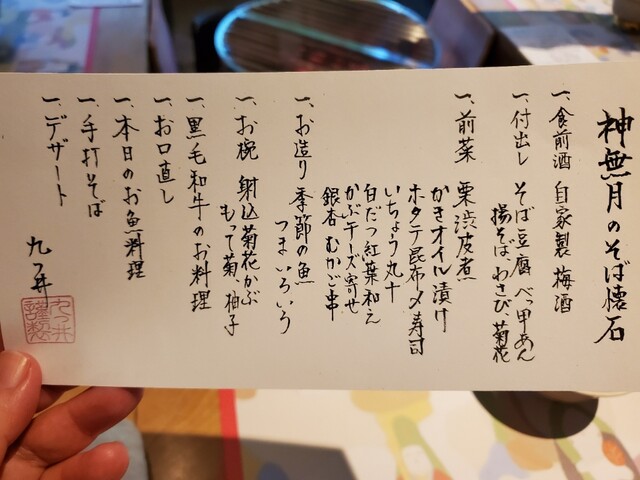 神無月のそば懐石
一、食前酒 自家製 梅酒
一、付出し そば豆腐 べっ甲あん
揚そば、わさび、菊花
一、前菜 栗渋皮煮
かきオイル漬け
ホタテ昆布〆寿司
いちょう丸十
白だつ紅葉和え
かぶチーズ寄せ
銀杏 むかご串
一、お造り 季節の魚
つまいろいろ
一、お椀 射込菊花かぶ
もって菊、柚子
一、黒毛和牛のお料理
一、お口直し
一、本日のお魚料理
一、手打そば
一、デザート
九つ井
九つ井
謹製